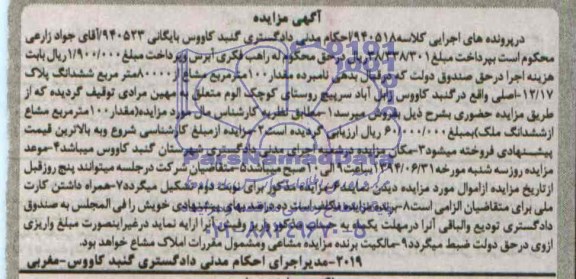 آگهی مزایده
درپرونده های اجرایی کلاسه ۹۴۰۵۱۸/احکام مدنی دادگستری گنبد کاووس بایگانی ۹۴۰۵۲۳/آقای جواد زارعی
محکوم است بپرداخت مبلغ ۳۸/۳۳۸/۳۰۱ریال درحق محکوم له راهب فکری آبرش وپرداخت مبلغ ۱/۹۰۰/۰۰۰ریال بابت
هزینه اجرا درحق صندوق دولت که درقبال بدهی نامبرده مقدار۱۰۰مترمربع مشاع از۸۰۰۰۰متر مربع ششدانگ پلاک
۱۲/۱۷-اصلی واقع درگنبد کاووس زابل آباد سرپیچ روستای کوچک الوم متعلق به مهین مرادی توقیف گردیده که از
طریق مزایده حضوری بشرح ذیل بفروش میرسد۱-مطابق نظریه کارشناس مال مورد مزایده(مقدار۱۰۰مترمربع مشاع
ازششدانگ ملک)بمبلغ ۶۰/۰۰۰/۰۰۰ ریال ارزیابی گردیده است۲-مزایده ازمبلغ کارشناسی شروع وبه بالاترین قیمت
پیشنهادی فروخته میشود۳-مکان مزایده درشعبه اجرای مدنی دادگستری شهرستان گنبد کاووس میباشد۴-موعد
مزایده روزسه شنبه مورخه ۱۳۹۴/۰۶/۳۱ساعت۹ الی ۱۰صبح میباشد۵-متقاضیان شرکت درجلسه میتوانند پنج روزقبل
ازتاریخ مزایده ازاموال مورد مزایده دیدن نمایند۶-مزایده مذکور برای نوبت دوم تشکیل میگردد۷-همراه داشتن کارت
ملی برای متقاضیان الزامی است۸-برنده مزایده مکلف است ده درصد بهای پیشنهادی خویش را فی المجلس به صندوق
دادگستری تودیع والباقی آنرا درمهلت یکماه به حساب مذکور واریز وفیش آنرا ارایه نماید درغیراینصورت مبلغ واریزی
ازوی درحق دولت ضبط میگردد۹-مالکیت برنده مزایده مشاعی ومشمول مقررات املاک مشاع خواهد بود.
۲۰۱۹-مدیراجرای احکام مدنی دادگستری گنبد کاووس-مغربی
ParsNamadData